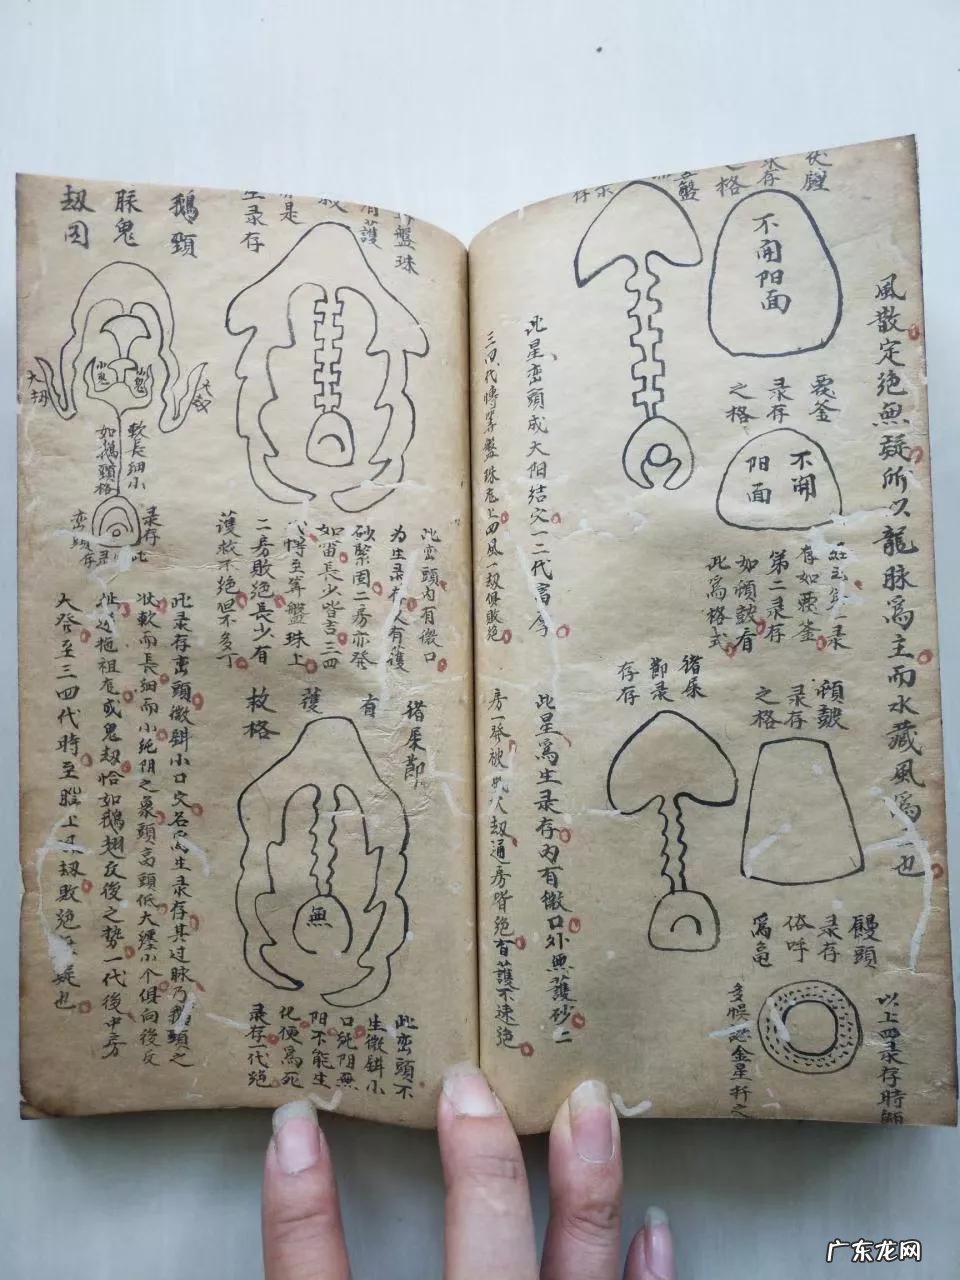 風散定绝無疑所以龍脉爲主而水藏風爲二也
不開阳面
覆釜
录存
之格
不開
阳面
第二录存
如頓皷看
此爲格式
頓皷
录存
之格
饅頭
录存
俗呼
爲
以上四录存時師
多悞認金星扦之
此星巒頭成大阳结穴一二代富厚
三四代轉筭盤珠龙上四風一刼俱敗绝
猪屎
節录
存存
此星爲生录存内有微口外無護砂二
房一發被
刼通房皆绝有護不速绝
盤珠
有護
生录存
此巒頭内有微口
为生录存人有護
砂緊固二房亦發
如富長少皆吉三四
代轉至筭盤珠上
二房敗绝長少有
護救不绝但不多丁
猪屎節
有
護
救格
無
此巒頭不
生微鉺小
口純阴無
阳不能生
化便爲死
录存一代绝
鵝頸
脉鬼
刼因
小鬼
小鬼
大刼
軟長細小
如鵝頸格
此录存巒頭微鉺小口穴名爲生录存其过脉乃鵝頸之
状軟而長細而小純阴之象頭高頸低大纒小个俱向後反
拖祖龙或鬼刼恰如鵝翅反後之勢一代後中房
大發至三四代時至
上
刼敗绝無疑也
广东龙网